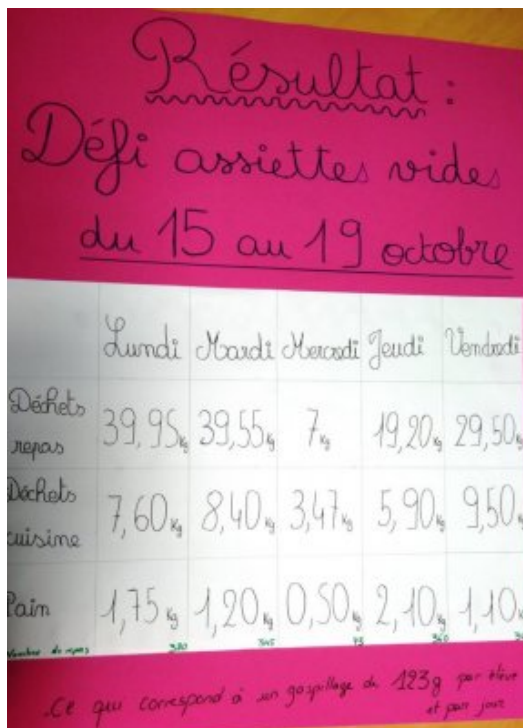 Résultat :
Défi assiettes vides
du 15 au 19 octobre
Lundi Mardi Mercredi Jeudi Vendredi
Déchets repas 39,95 Kg 39,55 Kg 7 Kg 19,20 Kg 29,50 Kg
Déchets cuisine 7,60 Kg 8,40 Kg 3,47 Kg 5,90 Kg 9,50 Kg
Pain 1,75 Kg 1,20 Kg 0,50 Kg 2,10 Kg 1,10 Kg
Nombre de repas 380 345 75 360
Ce qui correspond à un gaspillage de 123g par élève
et par jour